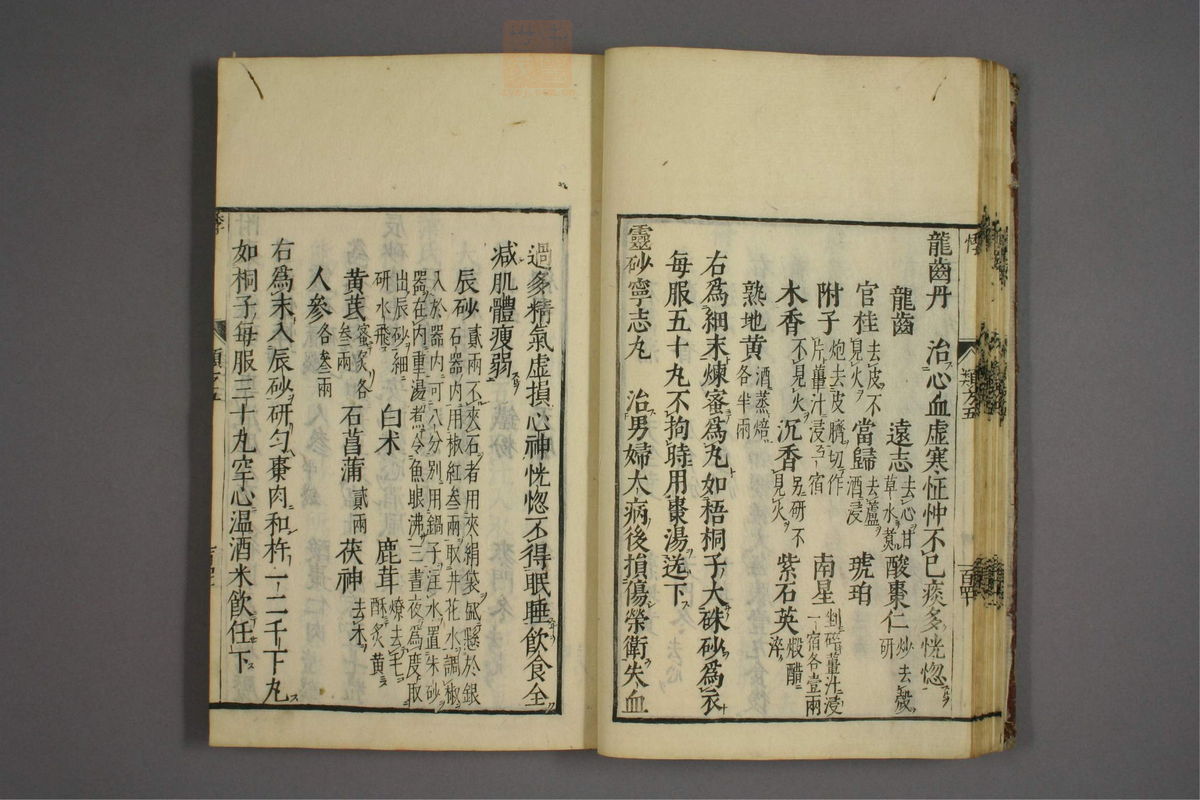 龍齒丹　治心血虛寒怔忡不已痰多恍惚
龍齒　遠志去心甘草水煑　酸棗仁炒去殼研
官桂去皮不見火　當歸去蘆酒浸　琥珀
附子炮去皮臍切作片薑汁浸一宿　南星剉碎薑汁浸一宿各壹兩
木香不見火　沉香另研不見火　紫石英煆醋淬
熟地黄酒蒸焙各半兩
右爲細末煉蜜爲丸如梧桐子大硃砂爲衣
每服五十丸不拘時用棗湯送下
靈砂寧志丸　治男婦大病後損傷榮衛失血
過多精氣虛損心神恍惚不得眠睡飲食全
减肌體瘦弱
辰砂貳兩不夾石者用夾絹袋盛懸於銀石器內用椒紅叁兩取井花水調椒入於器內可八分別用鍋子注水置朱砂器在內重湯煑令魚眼沸三晝夜爲度取出辰砂細研水飛　白术　鹿茸燎去毛酥炙黄
黄芪蜜炙各叁兩　石菖蒲貳兩　茯神去木
人參各叁兩
右爲末入辰砂研匀棗肉和杵一二千下丸
如桐子每服三十丸空心温酒米飲任下
類方五